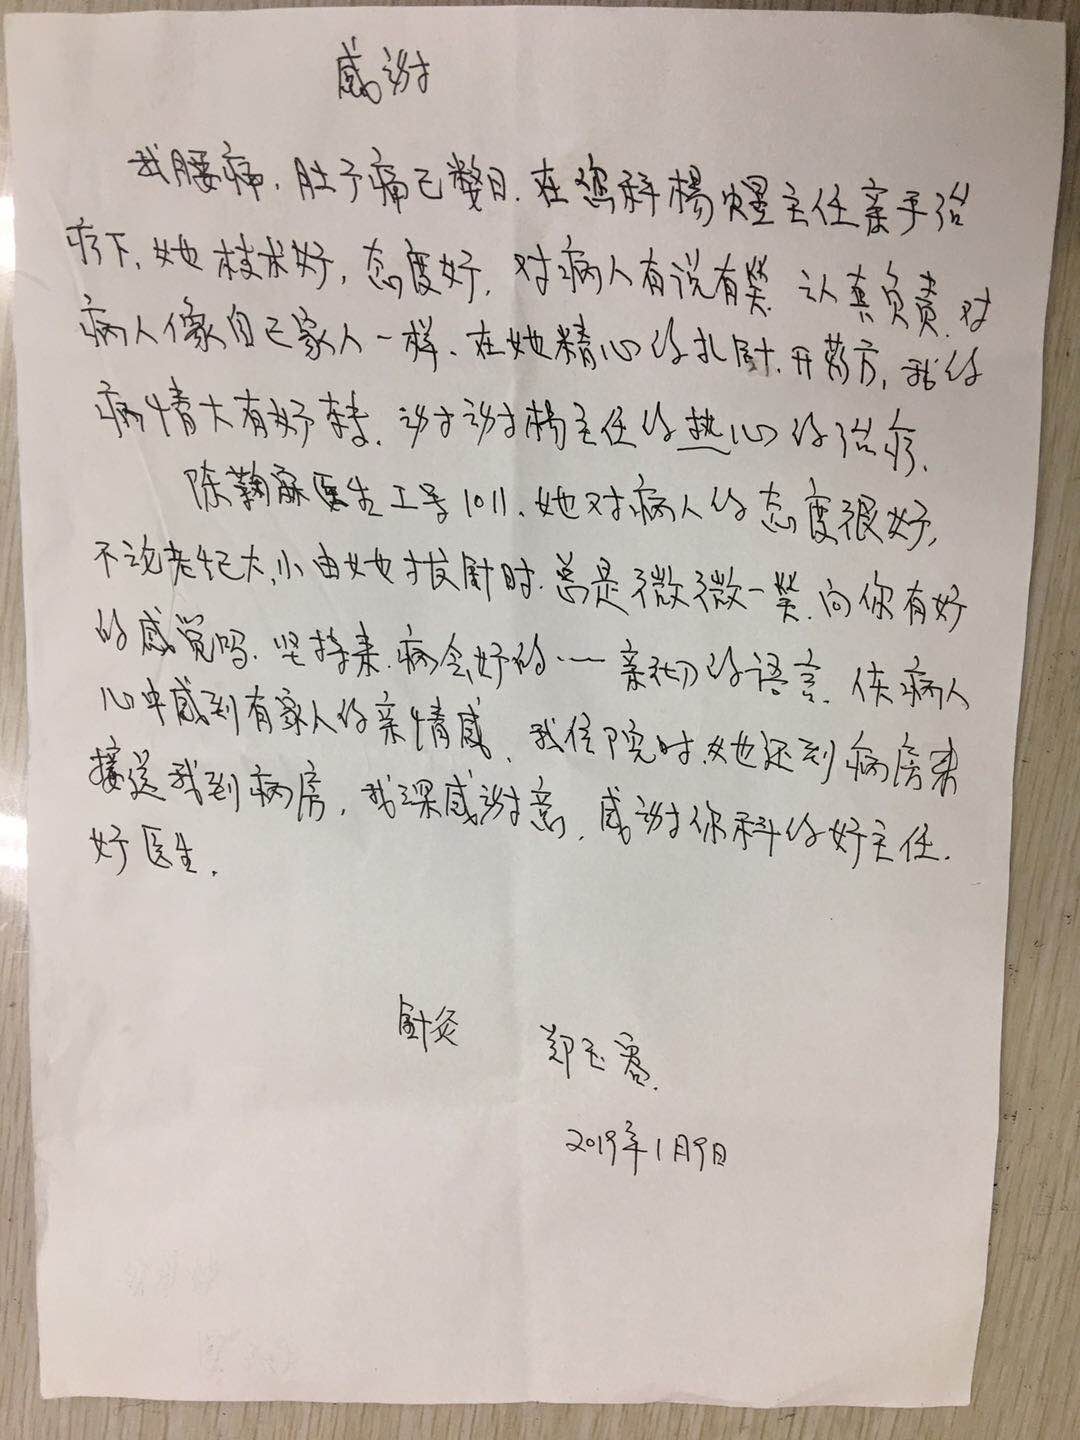 感谢
我腰痛，肚子痛已数日.在您科楊主任亲手治
疗下，她技术好，态度好，对病人有说有笑.认真负责.对
病人像自己家人一样、在她精心的扎針.开药方，我的
病情大有好转.谢谢楊主任的热心的治疗.
陈鞠医生工号1011.她对病人的态度很好，
不论老纪大、小由她拔針时.总是微微一笑.向你有好
的感觉吗.坚持来.病会好的……亲切的语言.使病人
心中感到有家人的亲情感.我住院时.她还到病房来
接送我到病房，我深感谢意.感谢你科的好主任.
好医生.
針灸
郑玉
2019年1月9日